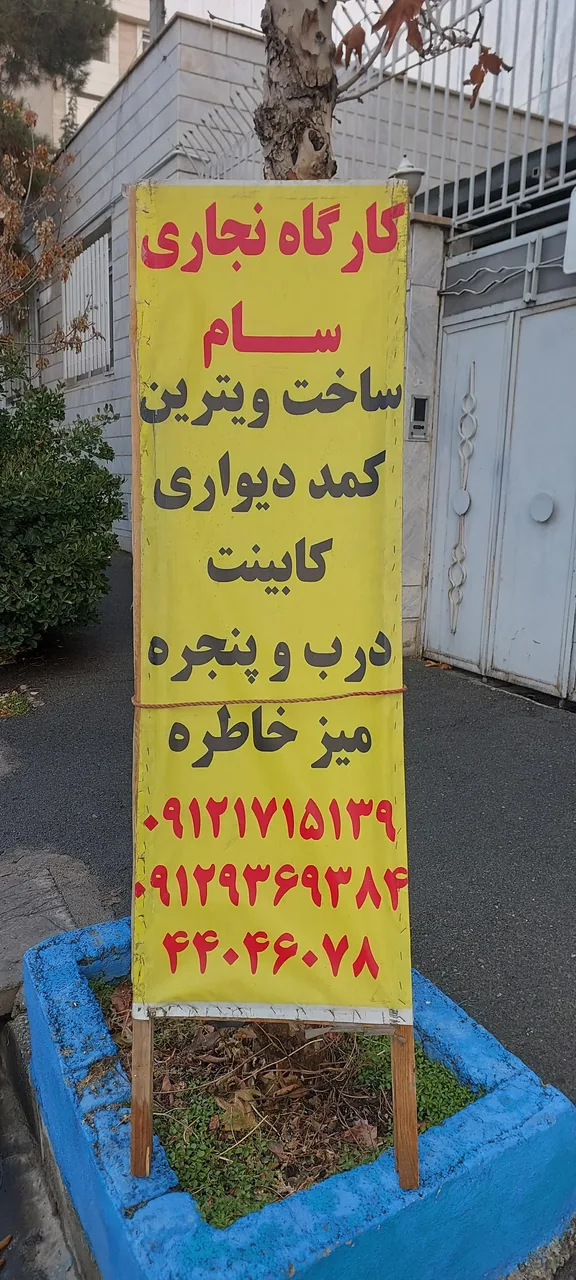 کارگاه نجاری
ســـام
ساخت ویترین
کمد دیواری
کابینت
درب و پنجره
میز خاطره
۰۹۱۲۱۷۱۵۱۳۹
۰۹۱۲۹۳۶۹۳۸۴
۴۴۰۴۶۰۷۸